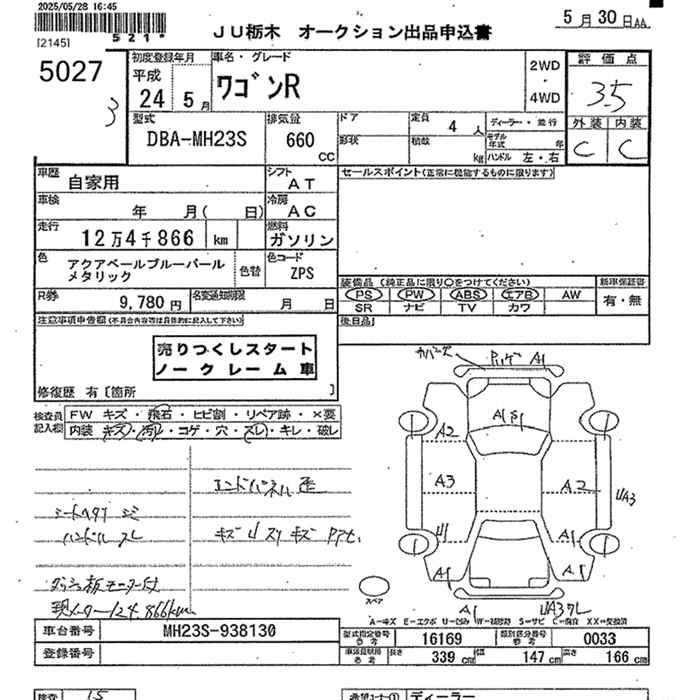 2025/05/28 16:45
[2145]
521*
JU栃木 オークション出品申込書
5月30日AA
5027
3
初度登録年月
平成
24 5月
車名・グレード
ワゴンR
2WD
・
4WD
評価点
3.5
外装 内装
C C
型式
DBA-MH23S
排気量
660 cc
ドア
形状
定員
4 人
積載
kg
ディーラー・並行
モデル年式 年
ハンドル 左・右
車歴
自家用
シフト
AT
セールスポイント(正常に機能するものに限ります)
車検
年 月( 日)
冷房
AC
走行
12万4千866 km
燃料
ガソリン
色
アクアベールブルーパール
メタリック
色替
色コード
ZPS
装備品 (純正品に限り○をつけてください)
PS PW ABS エアB AW
SR ナビ TV カワ
新車保証書
有・無
R券
9,780 円
名変通知期限
月 日
後日品
注意事項申告欄(不具合内容等は具体的に記入して下さい)
売りつくしスタート
ノークレーム車
修復歴 有〔箇所
検査員
記入欄
FW キズ・飛石・ヒビ割・リペア跡・×要
内装 キズ・汚れ・コゲ・穴・スレ・キレ・破レ
エンドパネル歪
ハンドル スレ
現メーター124,866km
A1
A2
A3
A2
UA3
U1
A1
A1
A1
A1
スペア
A=キズ E=エクボ U=凹み W=補修跡 S=サビ C=腐食 XX=交換済
車台番号
MH23S-938130
登録番号
型式指定番号
参考
16169
類別区分番号
参考
0033
車体登録用
参考
長さ
339 cm
幅
147 cm
高さ
166 cm
検査
15
希望コーナー①
ディーラー